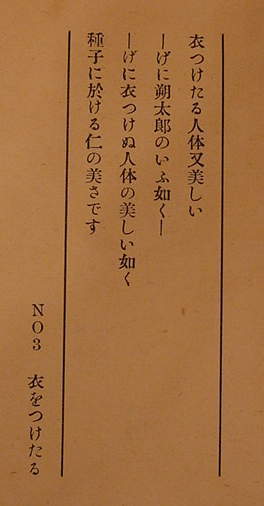 衣つけたる人体又美しい
―げに朔太郎のいふ如く―
―げに衣つけぬ人体の美しい如く
種子に於ける仁の美さです
NO3 衣をつけたる